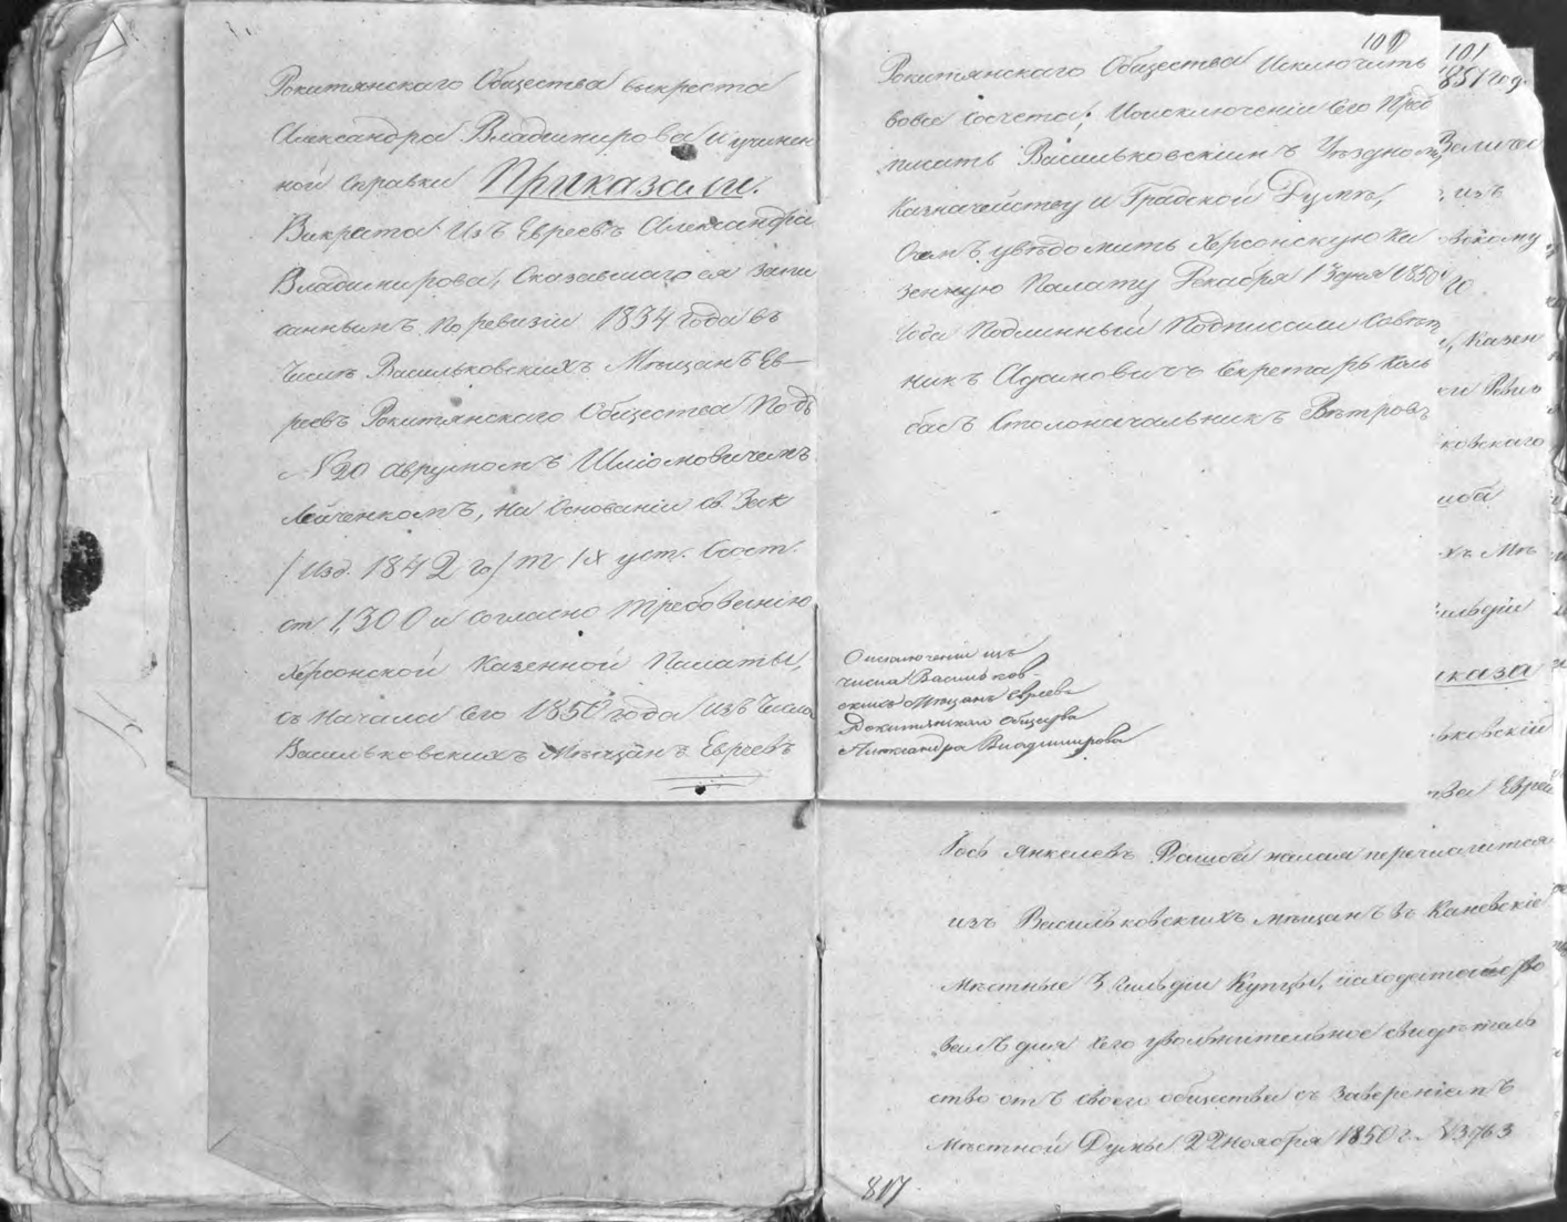 Рокитянскаго Общества выкреста
Александра Владимирова и учинен
ной справки Приказали.
Выкреста Изъ Евреевъ Александра
Владимирова, Оказавшагося запи
саннымъ По ревизіи 1834 года въ
Числѣ Васильковскихъ Мѣщанъ Ев—
реевъ Рокитянскаго Общества Подъ
№ 20 Аврумомъ Шліомовичемъ
Лейченкомъ, На Основаніи Св. Зак
/Изд. 1842 го/ т IX уст. Сост.
ст 1,300 и согласно требованію
Херсонской Казенной Палаты,
съ Начала Сего 1850 года Изъ Числа
Васильковскихъ Мѣщанъ Евреевъ
100
Рокитянскаго Общества Исключить
вовсе Сосчета; Иоисключеніи Сего Пред
писать Васильковскимъ Уѣздному
Казначейству и Градской Думѣ,
Очемъ увѣдомить Херсонскую Ка
зенную Палату Декабря 13 дня 1850
Года Подлинный Подписали Совѣт
никъ Адамовичъ Секретарь Коль
басъ Столоначальникъ Вѣтровъ
О исключеніи изъ
числа Васильков-
скихъ Мѣщанъ Евреевъ
Рокитянскаго Общества
Александра Владимирова
101
1851 год.
Величе
, изъ
овскому
го
, Казен
ковскаго
хъ Мѣ
ильдіи
иказа
ьковскій
ва Еврей
Іось Янкелевъ желая перечислится
изъ Васильковскихъ мѣщанъ въ Каневскіе
Мѣстные 3 Гильдіи Купцы,
велъ для сего увольнительное свидѣтель
ство отъ своего общества съ завереніемъ
Мѣстной Думы 22 Ноября 1850 г. № 3963
817